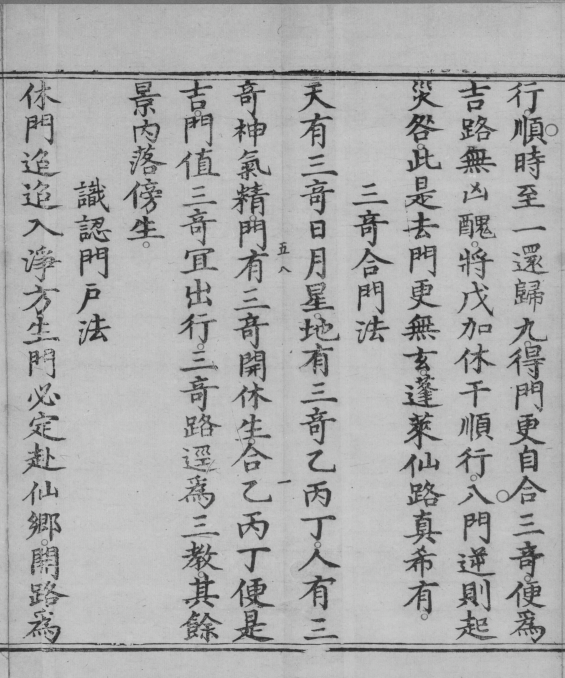 行順時至一還歸九。得門更自合三竒。便爲
吉路無凶醜。將戊加休干順行。八門逆則起
災咎。此是去門更無玄。蓬萊仙路真希有。
三竒合門法
天有三竒日月星。地有三竒乙丙丁。人有三
竒神氣精。門有三竒開休生。合乙丙丁便是
五八
一
吉。門值三竒宜出行。三竒路逕爲三教。其餘
景内落傍生。
識認門戸法
休門迢迢入淨方。生門必定赴仙鄉。開路爲